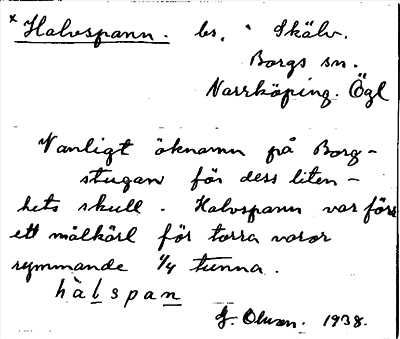 x Halvspann. bs, Skälv.
Borgs sn.
Norrköping. Ögl
Vanligt öknamn på Borg-
stugan för dess liten-
hets skull. Halvspann var förr
ett målkärl för torra varor
rymmande 1/4 tunna.
hàlspan
J. Olsson. 1938.